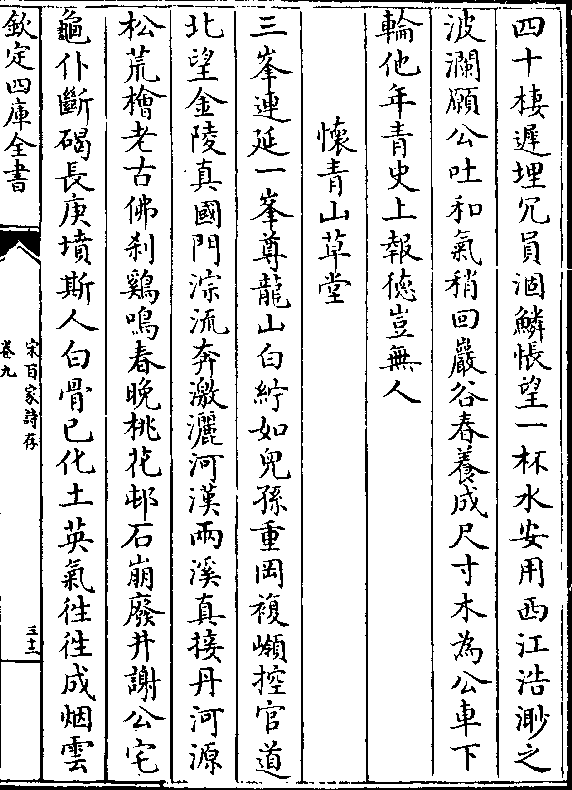 四十棲遲埋冗員涸鱗悵望一杯水安用西江浩渺之
波瀾願公吐和氣稍回巖谷春養成尺寸木為公車下
輪他年青史上報徳豈無人
懐青山草堂
三峯連延一峯尊龍山白紵如兒孫重岡複嶺控官道
北望金陵真國門淙流奔激灑河漢兩溪真接丹河源
松荒檜老古佛刹鷄鳴春晚桃花邨石崩廢井謝公宅
龜仆斷碣長庚墳斯人白骨已化土英氣徃徃成烟雲
欽定四庫全書
宋百家詩存
卷九
三十三